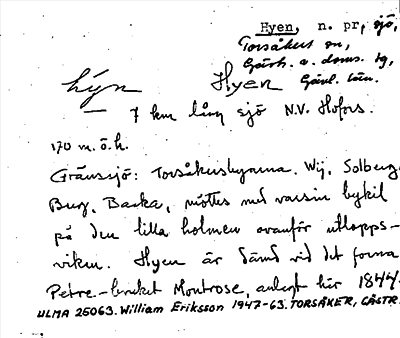 Hyen, n. pr., sjö,
Torsåkers sn,
Gästr. ö. doms. tg,
hýn Hyen Gävl. län.
7 km lång sjö N.V. Hofors.
170 m. ö. h.
Gränssjö: Torsåkersbyarna. Wij, Solberg,
Berg, Backa, möttes med varsin bykil
på den lilla holmen ovanför utlopps-
viken. Hyen är dämd vid det forna
Petre-bruket Montrose, anlagt här 1844.
ULMA 25063. William Eriksson 1947-63. TORSÅKER, GÄSTR.